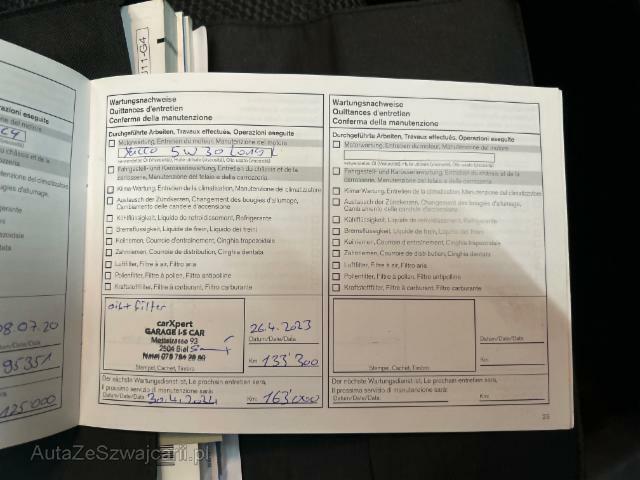 J11-G4
Operazioni eseguite
08.07.20
Datum/Date/Data
95351
125'000
Wartungsnachweise
Quittances d'entretien
Conferma della manutenzione
Durchgeführte Arbeiten, Travaux effectués, Operazioni eseguite
Motorwartung, Entretien du moteur, Manutenzione del motore
5W30
verwendetes Öl (Viskosität), Huile utilisée (viscosité), Olio usato (viscosità)
Fahrgestell- und Karosseriewartung, Entretien du châssis et de la
carrosserie, Manutenzione del telaio e della carrozzeria.
Klima-Wartung, Entretien de la climatisation, Manutenzione del climatizzatore
Austausch der Zündkerzen, Changement des bougies d'allumage,
Cambiamento delle candele d'accensione
Kühlflüssigkeit, Liquide de refroidissement, Refrigerante
Bremsflüssigkeit, Liquide de frein, Liquido dei freini
Keilriemen, Courroie d'entraînement, Cinghia trapezoidale
Zahnriemen, Courroie de distribution, Cinghia dentata
Luftfilter, Filtre à air, Filtro aria
Pollenfilter, Filtre à pollen, Filtro antipolline
Kraftstofffilter, Filtre à carburant, Filtro carburante
oil+filter
carXpert
GARAGE I-S CAR
Mettstrasse 93
2504 Biel
Stempel, Cachet, Timbro
26.4.2023
Datum/Date/Data
Km: 133'300
Der nächste Wartungsdienst ist, Le prochain entretien sera,
Il prossimo servizio di manutenzione sarà:
Datum/Date/Data 30.4.2024 Km: 163'000
Wartungsnachweise
Quittances d'entretien
Conferma della manutenzione
Durchgeführte Arbeiten, Travaux effectués, Operazioni eseguite
Motorwartung, Entretien du moteur, Manutenzione del motore
verwendetes Öl (Viskosität), Huile utilisée (viscosité), Olio usato (viscosità)
Fahrgestell- und Karosseriewartung, Entretien du châssis et de la
carrosserie, Manutenzione del telaio e della carrozzeria.
Klima-Wartung, Entretien de la climatisation, Manutenzione del climatizzatore
Austausch der Zündkerzen, Changement des bougies d'allumage,
Cambiamento delle candele d'accensione
Kühlflüssigkeit, Liquide de refroidissement, Refrigerante
Bremsflüssigkeit, Liquide de frein, Liquido dei freini
Keilriemen, Courroie d'entraînement, Cinghia trapezoidale
Zahnriemen, Courroie de distribution, Cinghia dentata
Luftfilter, Filtre à air, Filtro aria
Pollenfilter, Filtre à pollen, Filtro antipolline
Kraftstofffilter, Filtre à carburant, Filtro carburante
Stempel, Cachet, Timbro
Datum/Date/Data
Km:
Der nächste Wartungsdienst ist, Le prochain entretien sera,
Il prossimo servizio di manutenzione sarà:
Datum/Date/Data Km:
AutaZeSzwajcarii.pl